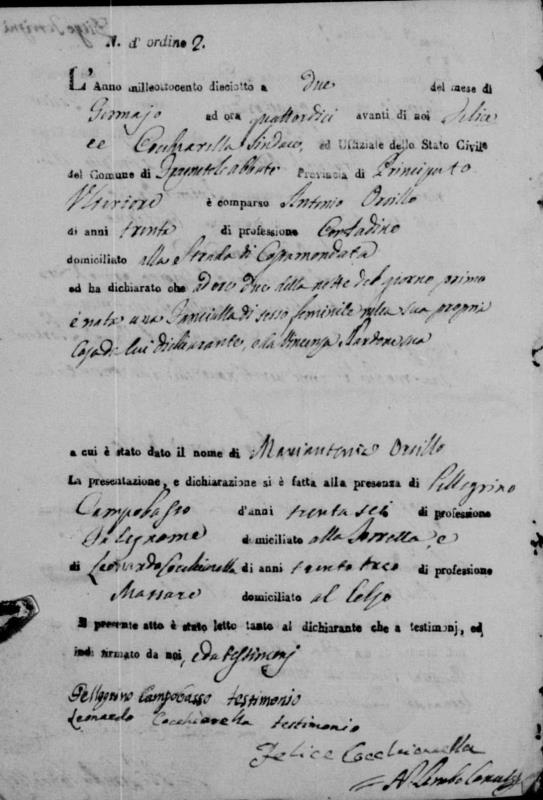 N. d'ordine 2.
L'Anno milleottocento dieciotto a due del mese di
Gennajo ad ora quattordici avanti di noi Felice
Cocchiarella Sindaco, ed Uffiziale dello Stato Civile
del Comune di Provincia di Principato
Ulteriore è comparso Antonio Orsillo
di anni trenta di professione Contadino
domiciliato alla Strada di
ed ha dichiarato che ad ore due della notte del giorno primo
è nata una Fanciulla di sesso feminile nella sua propria
Casa da lui dichiarante, e da Vincenza
a cui è stato dato il nome di Mariantonia Orsillo
La presentazione, e dichiarazione si è fatta alla presenza di Pellegrino
Campobasso d'anni trenta sei di professione
Falegname domiciliato alla e
di Leonardo Cocchiarella di anni trenta tre di professione
Massaro domiciliato al
Il presente atto è stato letto tanto al dichiarante che a testimonj, ed
indi firmato da noi, e da testimonj
Pellegrino Campobasso testimonio
Leonardo Cocchiarella testimonio
Felice Cocchiarella